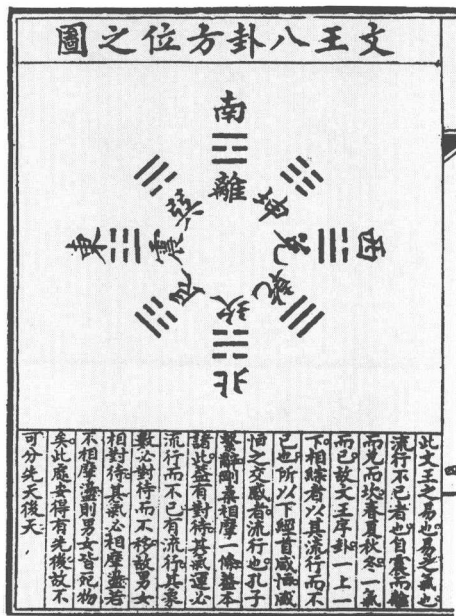 文王八卦方位之圖
南
離
坤
兌
西
乾
坎
北
艮
震
東
巽
此文王之易也易之氣也
流行不已者也自震而離
而兌而坎春夏秋冬一氣
而已故文王序卦一上一
下相綜者以其流行而不
已也所以下經首咸恒咸
恒之交感者流行也孔子
繫辭剛柔相摩一條蓋本
諸此蓋有對待其氣運必
流行而不已有流行其象
數必對待而不移故男女
相對待其氣必相摩盪若
不相摩盪則男女皆死物
矣此處安得有先後故不
可分先天後天
四